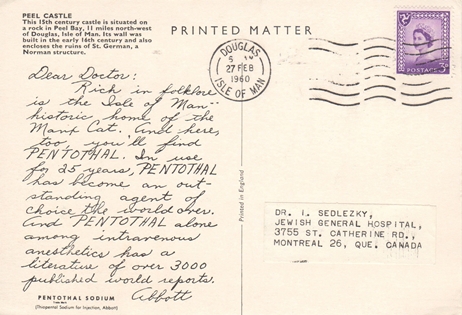 PEEL CASTLE
This 15th century castle is situated on
a rock in Peel Bay, 11 miles north-west
of Douglas, Isle of Man. Its wall was
built in the early 16th century and also
encloses the ruins of St. German, a
Norman structure.
PRINTED MATTER
DOUGLAS
27 FEB
1960
ISLE OF MAN
POSTAGE
3D
Dear Doctor:
Rich in folklore
is the Isle of Man--
historic home of the
Manx Cat. And here,
too, you'll find
PENTOTHAL. In use
for 25 years, PENTOTHAL
has become an out-
standing agent of
choice the world over.
And PENTOTHAL alone
among intravenous
anesthetics has a
literature of over 3000
published world reports.
Abbott
PENTOTHAL SODIUM
Trade Mark
(Thiopental Sodium for Injection, Abbott)
Printed in England
DR. I. SEDLEZKY,
JEWISH GENERAL HOSPITAL,
3755 ST. CATHERINE RD.,
MONTREAL 26, QUE. CANADA